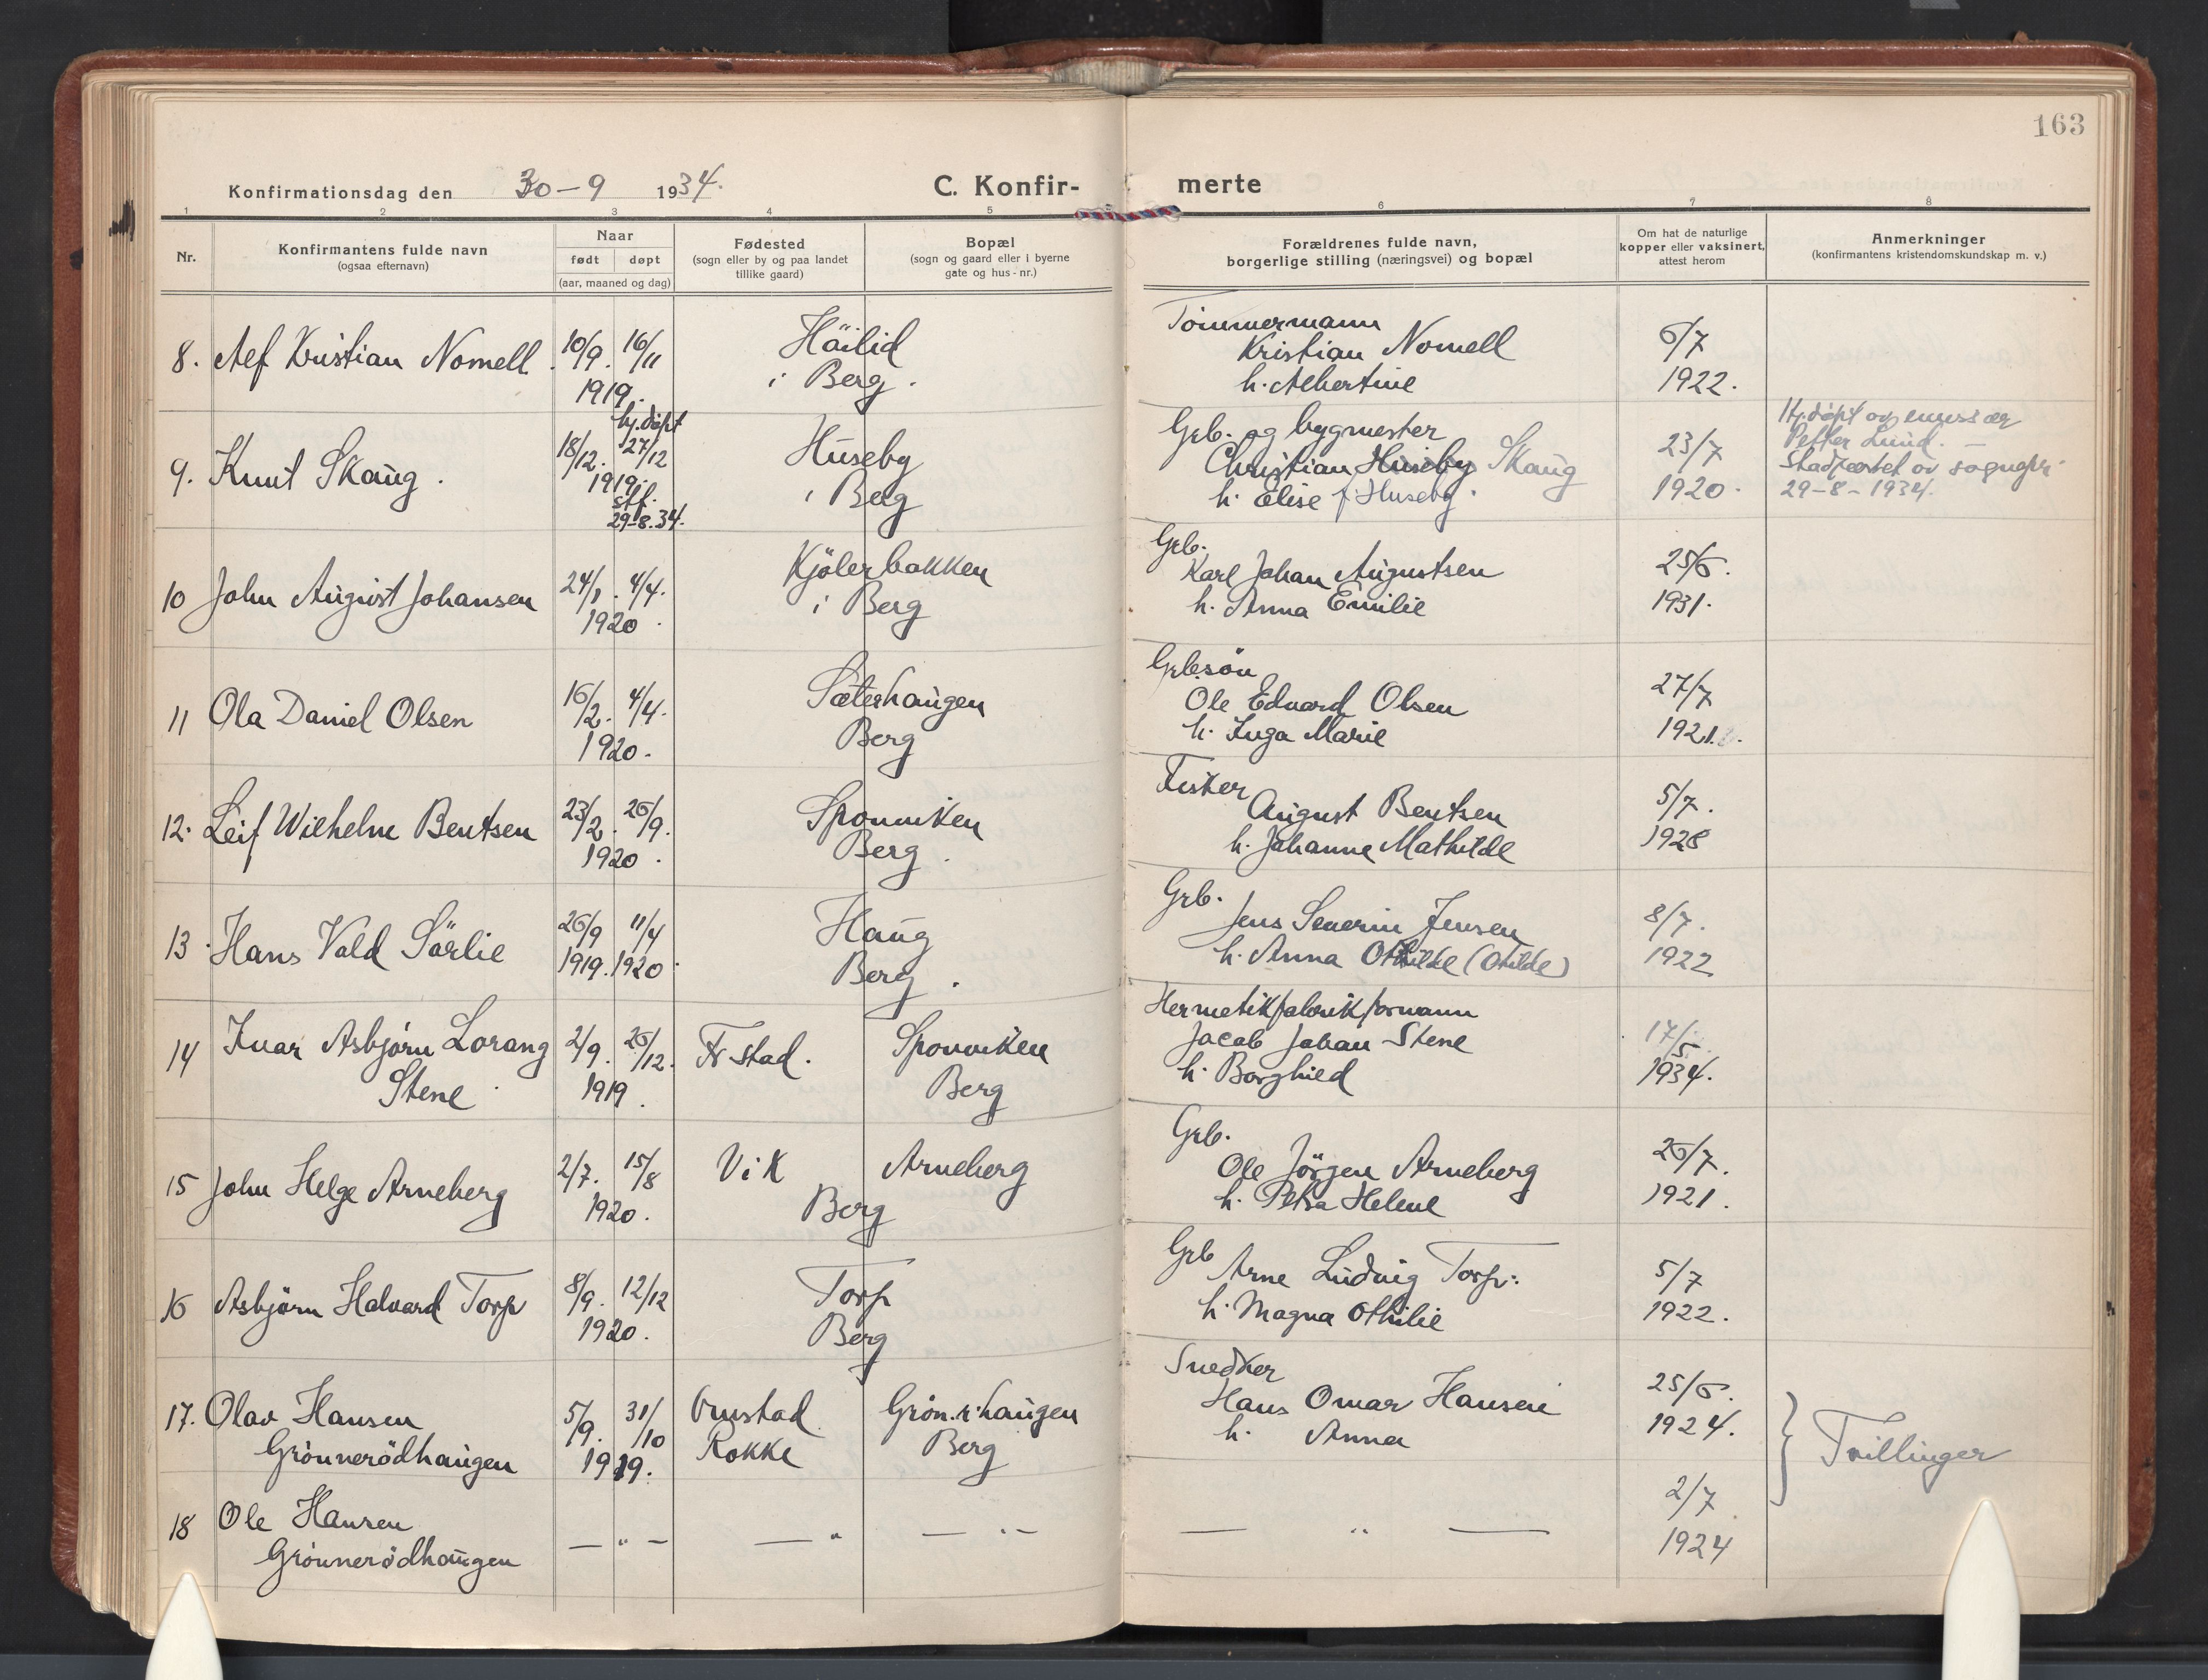 163
Konfirmationsdag den 30-9 1934.
C. Konfir-
merte
1 2 3 4 5 6 7 8
Nr.
Konfirmantens fulde navn
(ogsaa efternavn)
Naar
født døpt
(aar, maaned og dag)
Fødested
(sogn eller by og paa landet
tillike gaard)
Bopæl
(sogn og gaard eller i byerne
gate og hus-nr.)
Forældrenes fulde navn,
borgerlige stilling (næringsvei) og bopæl
Om hat de naturlige
kopper eller vaksinert,
attest herom
Anmerkninger
(konfirmantens kristendomskundskap m. v.)
8. Alf Kristian Nomell.
10/9. 16/11
1919.
Häilid
i Berg.
Tömmermann
Kristian Nomell
h. Albertine
6/7
1922.
9. Knut Skaug.
hj.döpt
18/12. 27/12
1919.
stf.
29-8.34.
Huseby
i Berg
Grb. og bygmester
Christian Huseby Skaug
h. Elise f. Huseby.
23/7
1920.
Hj.döpt av
Petter Lund. —
Stadfæstet av sognepr.
29-8-1934.
10 John August Johansen
24/1. 4/4.
1920.
Kjölerbakken
i Berg
Grb.
Karl Johan Augustsen
h. Anna Emilie
25/6.
1931.
11 Ola Daniel Olsen
16/2. 4/4.
1920.
Sæterhaugen
Berg
Grb.sön
Ole Edvard Olsen
h. Inga Marie
27/7
1921.
12. Leif Wilhelm Bentsen
23/2. 26/9.
1920.
Sponviken
Berg.
Fisker
August Bentsen
h. Johanne Mathilde
5/7.
1928
13. Hans Vold Sörlie
26/9 11/4
1919. 1920.
Haug
Berg.
Grb.
Jens Severin Jensen
h. Anna Othilde (Otilde)
8/7.
1922
14 Ivar Asbjörn Lorang
Stene
2/9. 26/12.
1919.
Fr.stad.
Sponviken
Berg
Hermetikfabrikformann
Jacob Johan Stene
h. Borghild
17/5
1934.
15 John Helge Arneberg
2/7. 15/8
1920.
Vik
Arneberg
Berg
Grb.
Ole Jörgen Arneberg
h. Petra Helene
26/7.
1921.
16 Asbjörn Halvard Torp
8/9. 12/12
1920.
Torp
Berg
Grb
Arne Ludvig Torp.
h. Magna Othilie
5/7
1922.
17. Olav Hansen
Grönnerödhaugen
5/9. 31/10
1919.
Ørustad
Rokke
Grön.r.haugen
Berg
Snedker
Hans Omar Hansen
h. Anna
25/6.
1924.
Tvillinger
18 Ole Hansen
Grönnerödhaugen
— " —
— "
— " —
— " —
2/7
1924